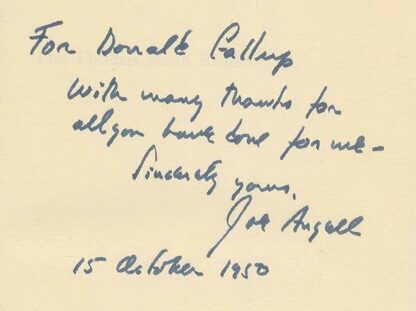 For Donald Gallup
With many thanks for
all you have done for me –
Sincerely yours,
Joe Angell
15 October 1950